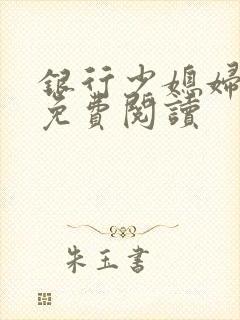 銀行少媳婦
免費閱讀
朱玉書